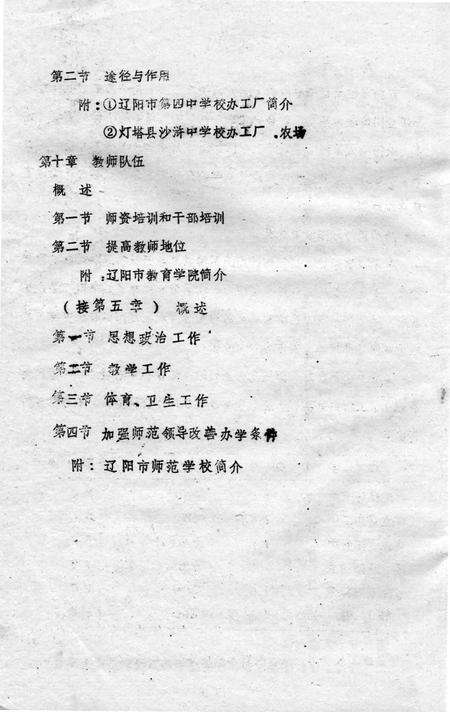 第二节 途径与作用
附:①辽阳市第四中学校办工厂简介
②灯塔县沙浒中学校办工厂、农场
第十章 教师队伍
概 述
第一节 师资培训和干部培训
第二节 提高教师地位
附:辽阳市教育学院简介
(接第五章) 概述
第一节 思想政治工作
第二节 教学工作
第三节 体育、卫生工作
第四节 加强师范领导改善办学条件
附:辽阳市师范学校简介